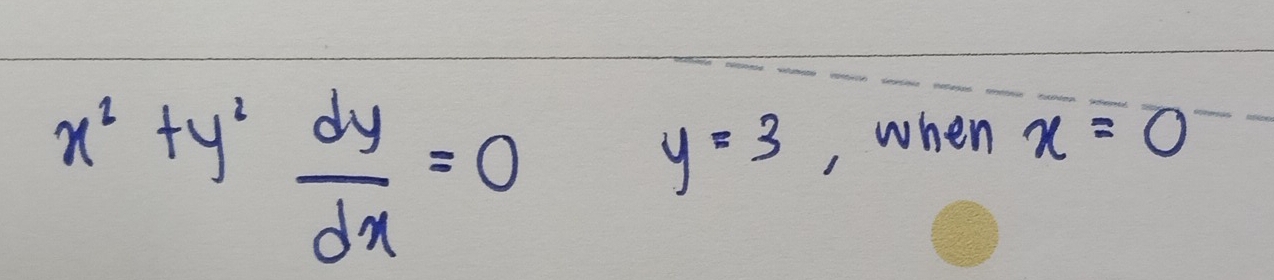 x² + y² dy/dx = 0    y = 3 , when x = 0